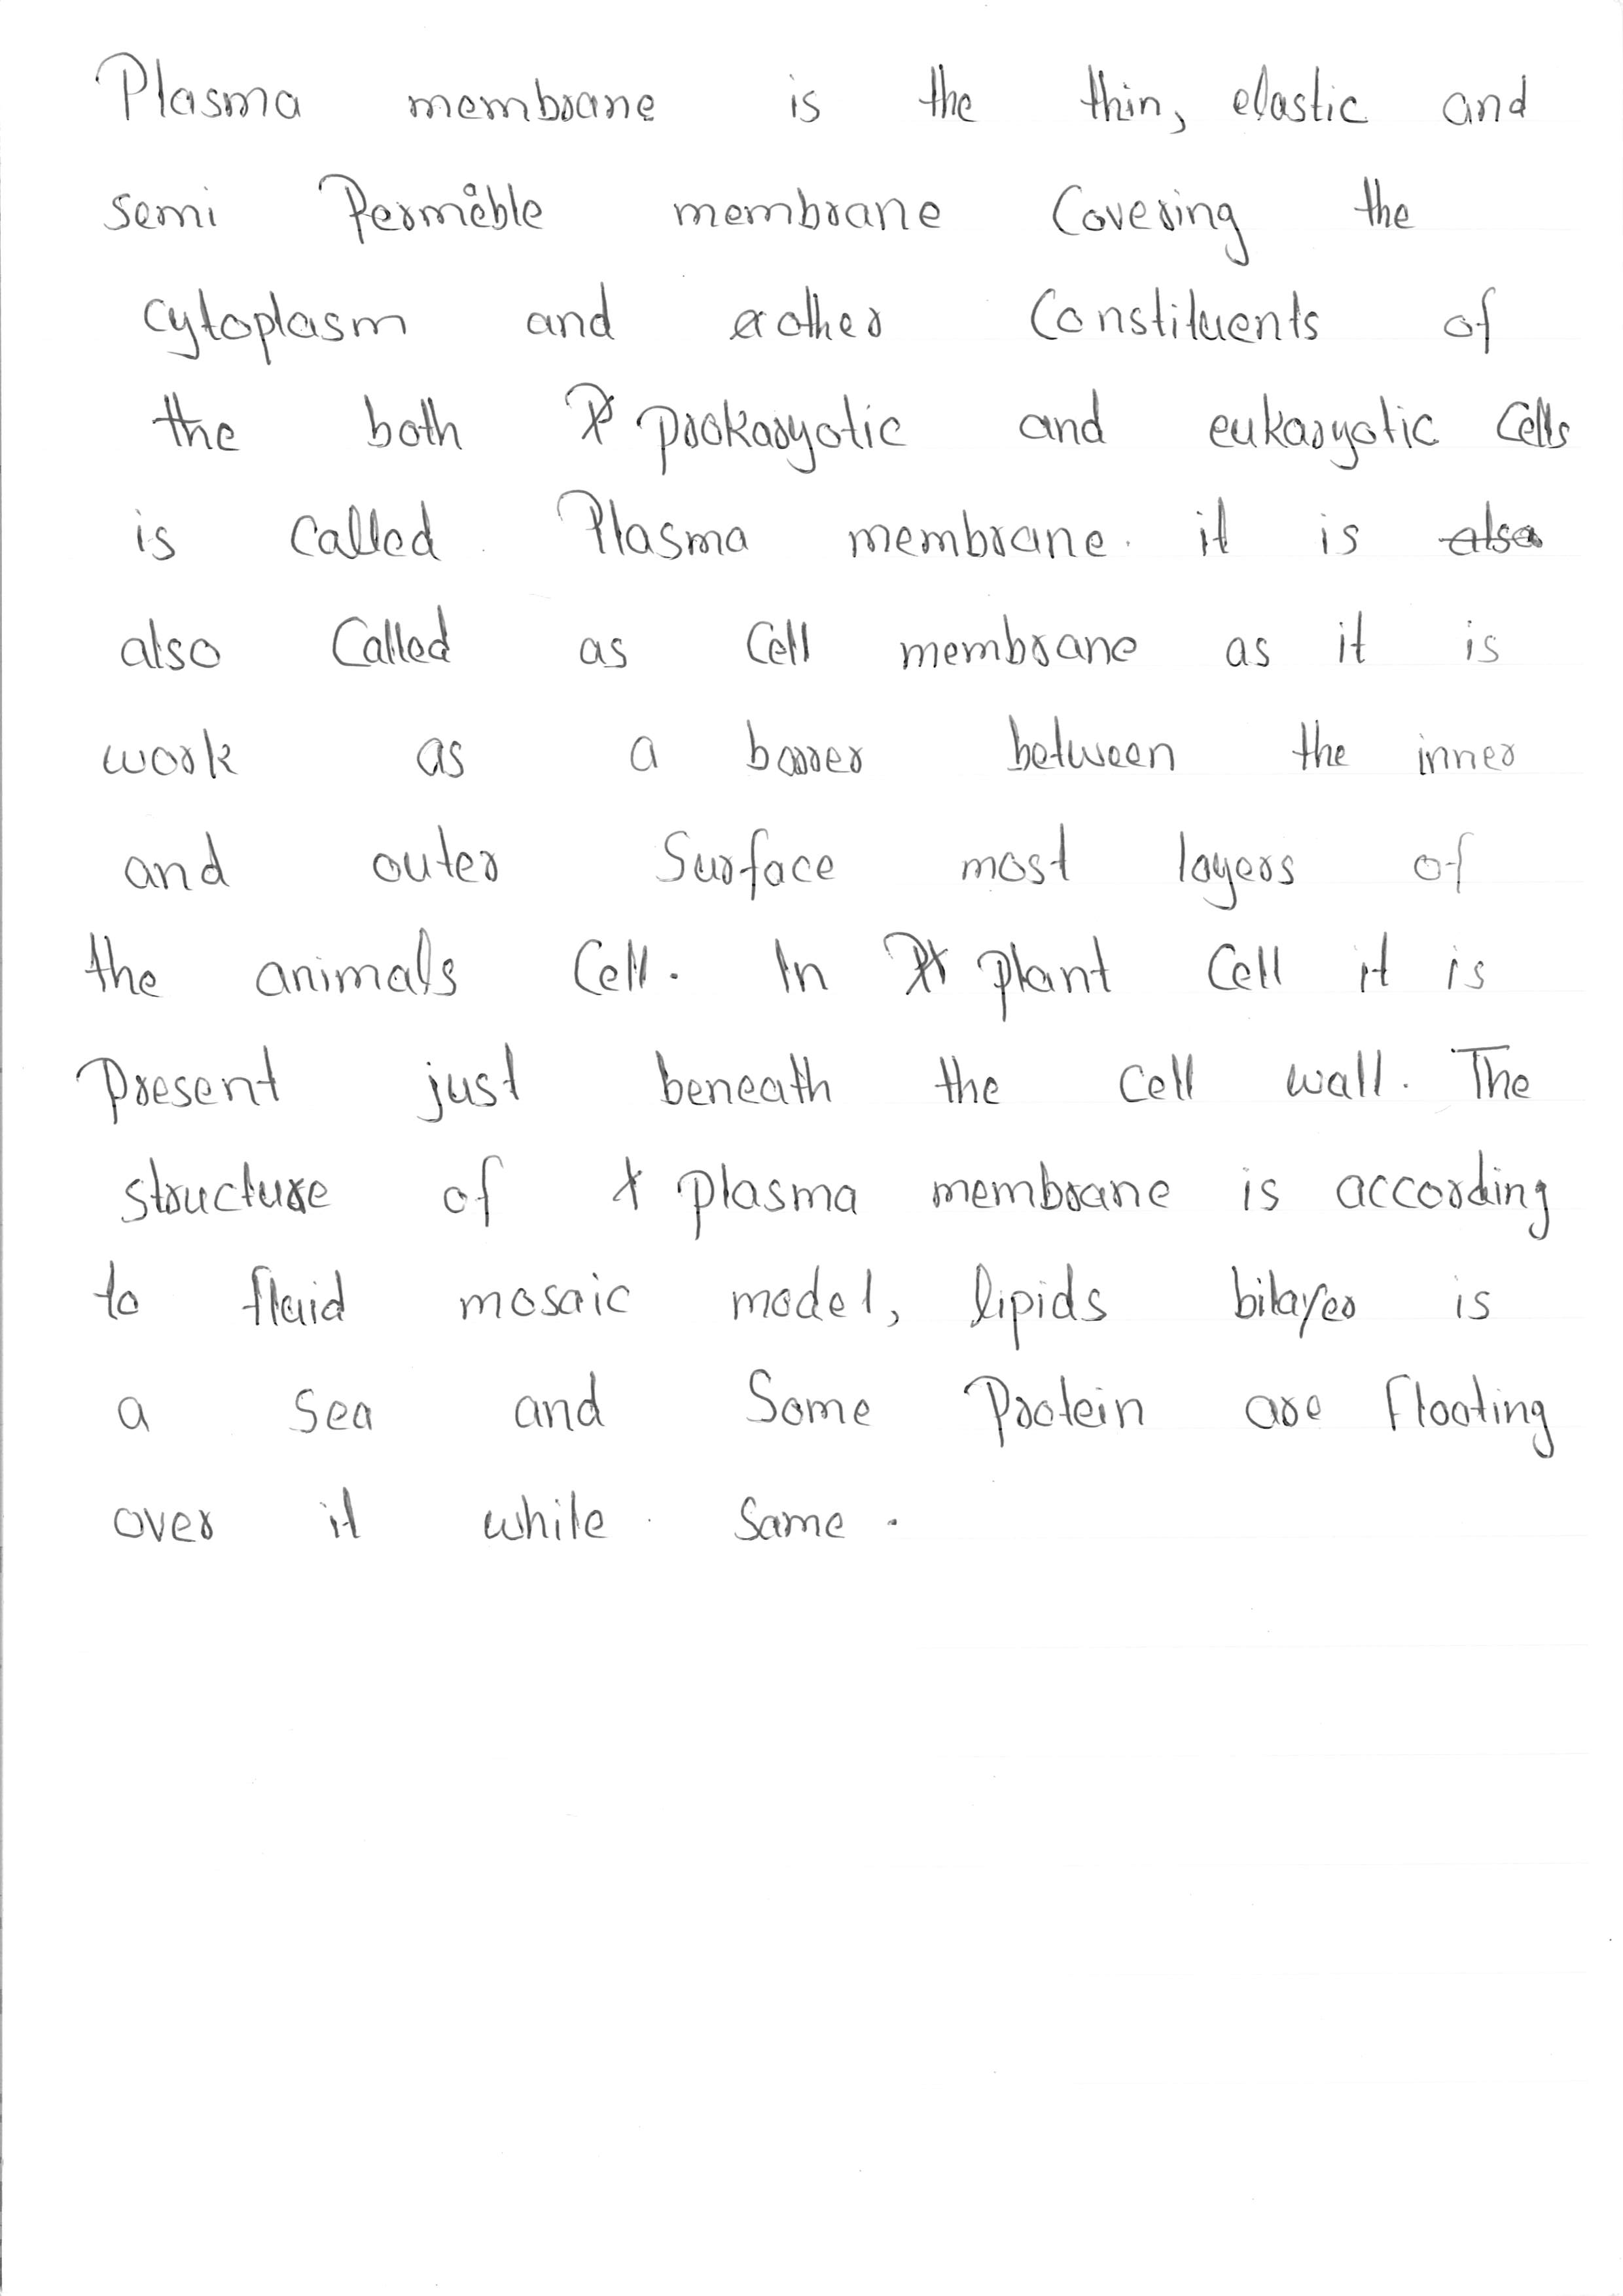 Plasma membrane is the thin, elastic and
semi Permeable membrane Covering the
cytoplasm and other Constituents of
the both prokaryotic and eukaryotic Cells
is Called Plasma membrane. it is also
also Called as Cell membrane as it is
work as a barrer between the inner
and outer Surface most layers of
the animals Cell. In plant Cell it is
Present just beneath the cell wall. The
structure of plasma membrane is according
to fluid mosaic model, lipids bilayer is
a sea and Some Protein are floating
over it while same.